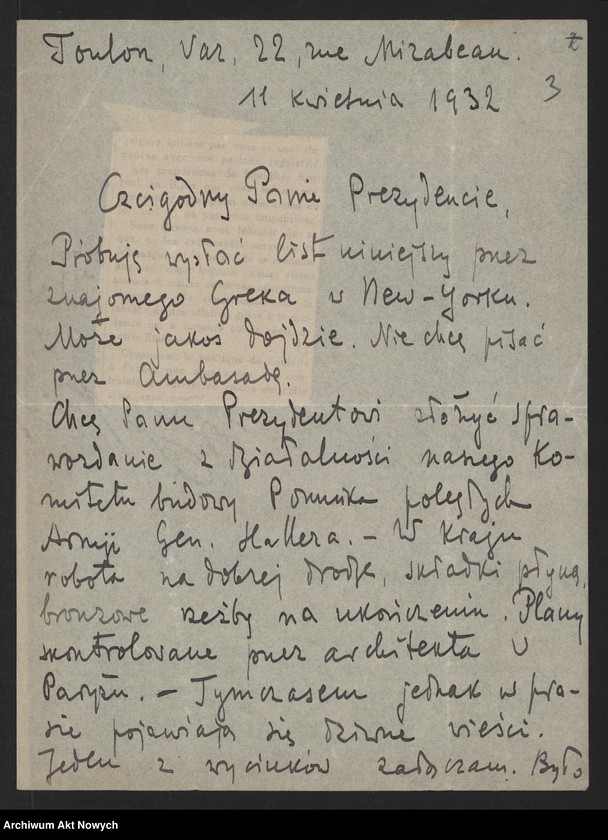 Toulon, Var, 22, rue Mirabeau.
11 kwietnia 1932
3
Czcigodny Panie Prezydencie,
Próbuję wysłać list niniejszy przez
znajomego Greka w New-Yorku.
Może jakoś dojdzie. Nie chcę pisać
przez Ambasadę.
Chcę Panu Prezydentowi złożyć spra-
wozdanie z działalności naszego Ko-
mitetu budowy Pomnika poległych
Armji Gen. Hallera. – W Kraju
robota na dobrej drodze, składki płyną,
bronzowe rzeźby na ukończeniu. Plany
skontrolowane przez architekta w
Paryżu. – Tymczasem jednak w pra-
sie pojawiają się dziwne wieści.
Jeden z wycinków załączam. Było
Archiwum Akt Nowych